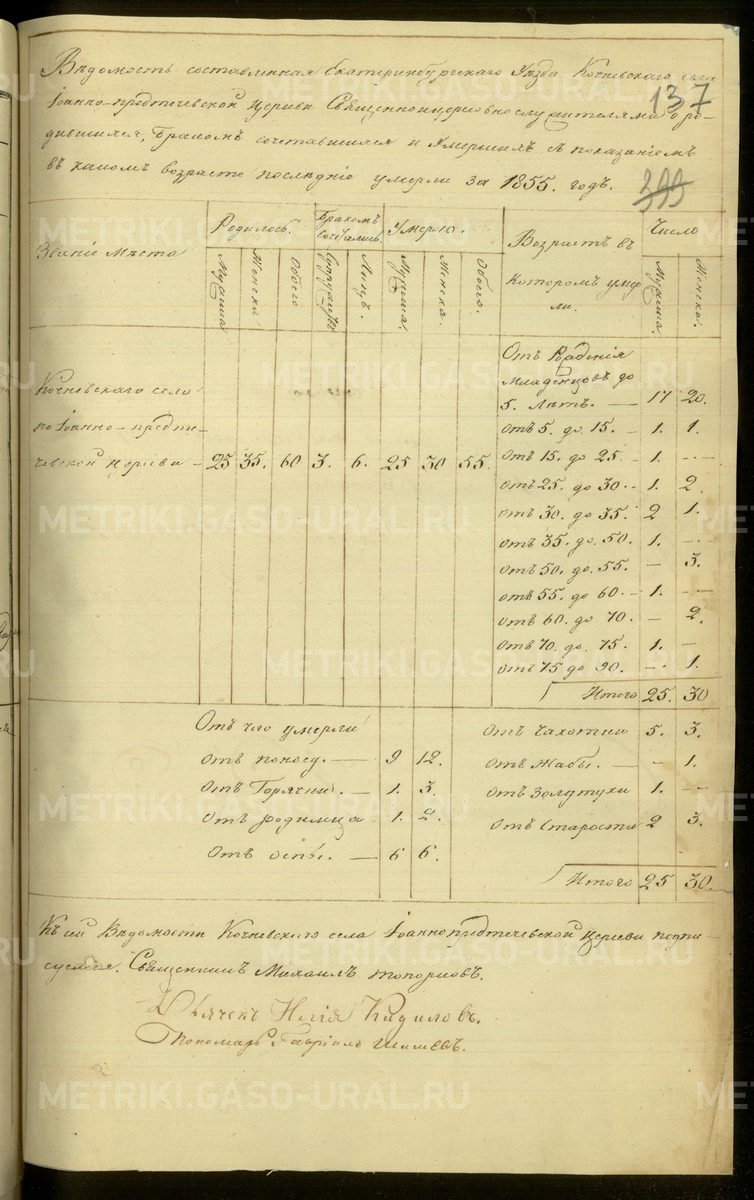 Вѣдомость составленная Екатеринбургскаго Уѣзда Кочневскаго села
137
Іоанно-предтечевской Церкви Священноцерковнослужителями о ро-
дившихся, Бракомъ сочетавшихся и Умершихъ съ показаніемъ
въ какомъ возрасте последніе умерли за 1855. годъ.
399
Званіе Мѣста
Родилось. Бракомъ Сочетались. Умерло. Возрастъ въ Которомъ умер- ли. Число
Мужска Женска Обоего Супружествъ Лицъ. Мужска. Женска. Обоего. Мужска. Женска.
Отъ Рожденія
Младенцовъ до
5. Лѣтъ. — 17 20.
Кочневскаго села
по Іоанно-предте-
чевской церкви — 25 35. 60 3. 6. 25 30 55.
отъ 5. до 15. — 1. 1.
отъ 15. до 25 — 1. —
отъ 25. до 30 — 1. 2.
отъ 30. до 35. 2 1.
отъ 35. до. 50. 1. —
отъ 50. до. 55. — 3.
отъ 55. до 60. — 1. —
отъ 60. до 70. — 2.
отъ 70. до. 75. 1. —
отъ 75 до 90. — 1.
Итого 25. 30
Отъ чего умерли
отъ поносу. — 9 12.
отъ Горячки. — 1. 3.
отъ родимца 1. 2.
отъ оспы. — 6 6.
отъ Чахотки 5. 3.
отъ Жабы. — - 1.
отъ Золотухи 1. —
отъ Старости 2 3.
Итого 25 30.
Къ сей Вѣдомости Кочневскаго села Іоаннопредтечевской Церкви подпи-
суемся. Священникъ Михаилъ Топорковъ.
Дьячекъ Илія Кидиловъ.
Пономарь Гавріилъ Шишевъ.
METRIKI.GASO-URAL.RU